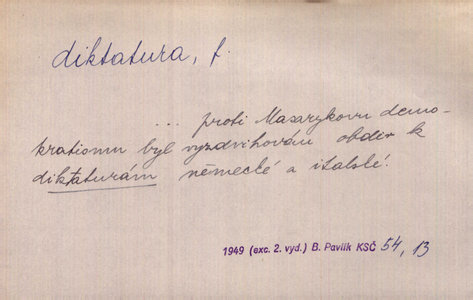 diktatura, f.
... proti Masarykovu demo-
kratismu byl vyzdvihován obdiv k
diktaturám německé a italské.
1949 (exc. 2. vyd.) B. Pavlík KSČ 54, 13